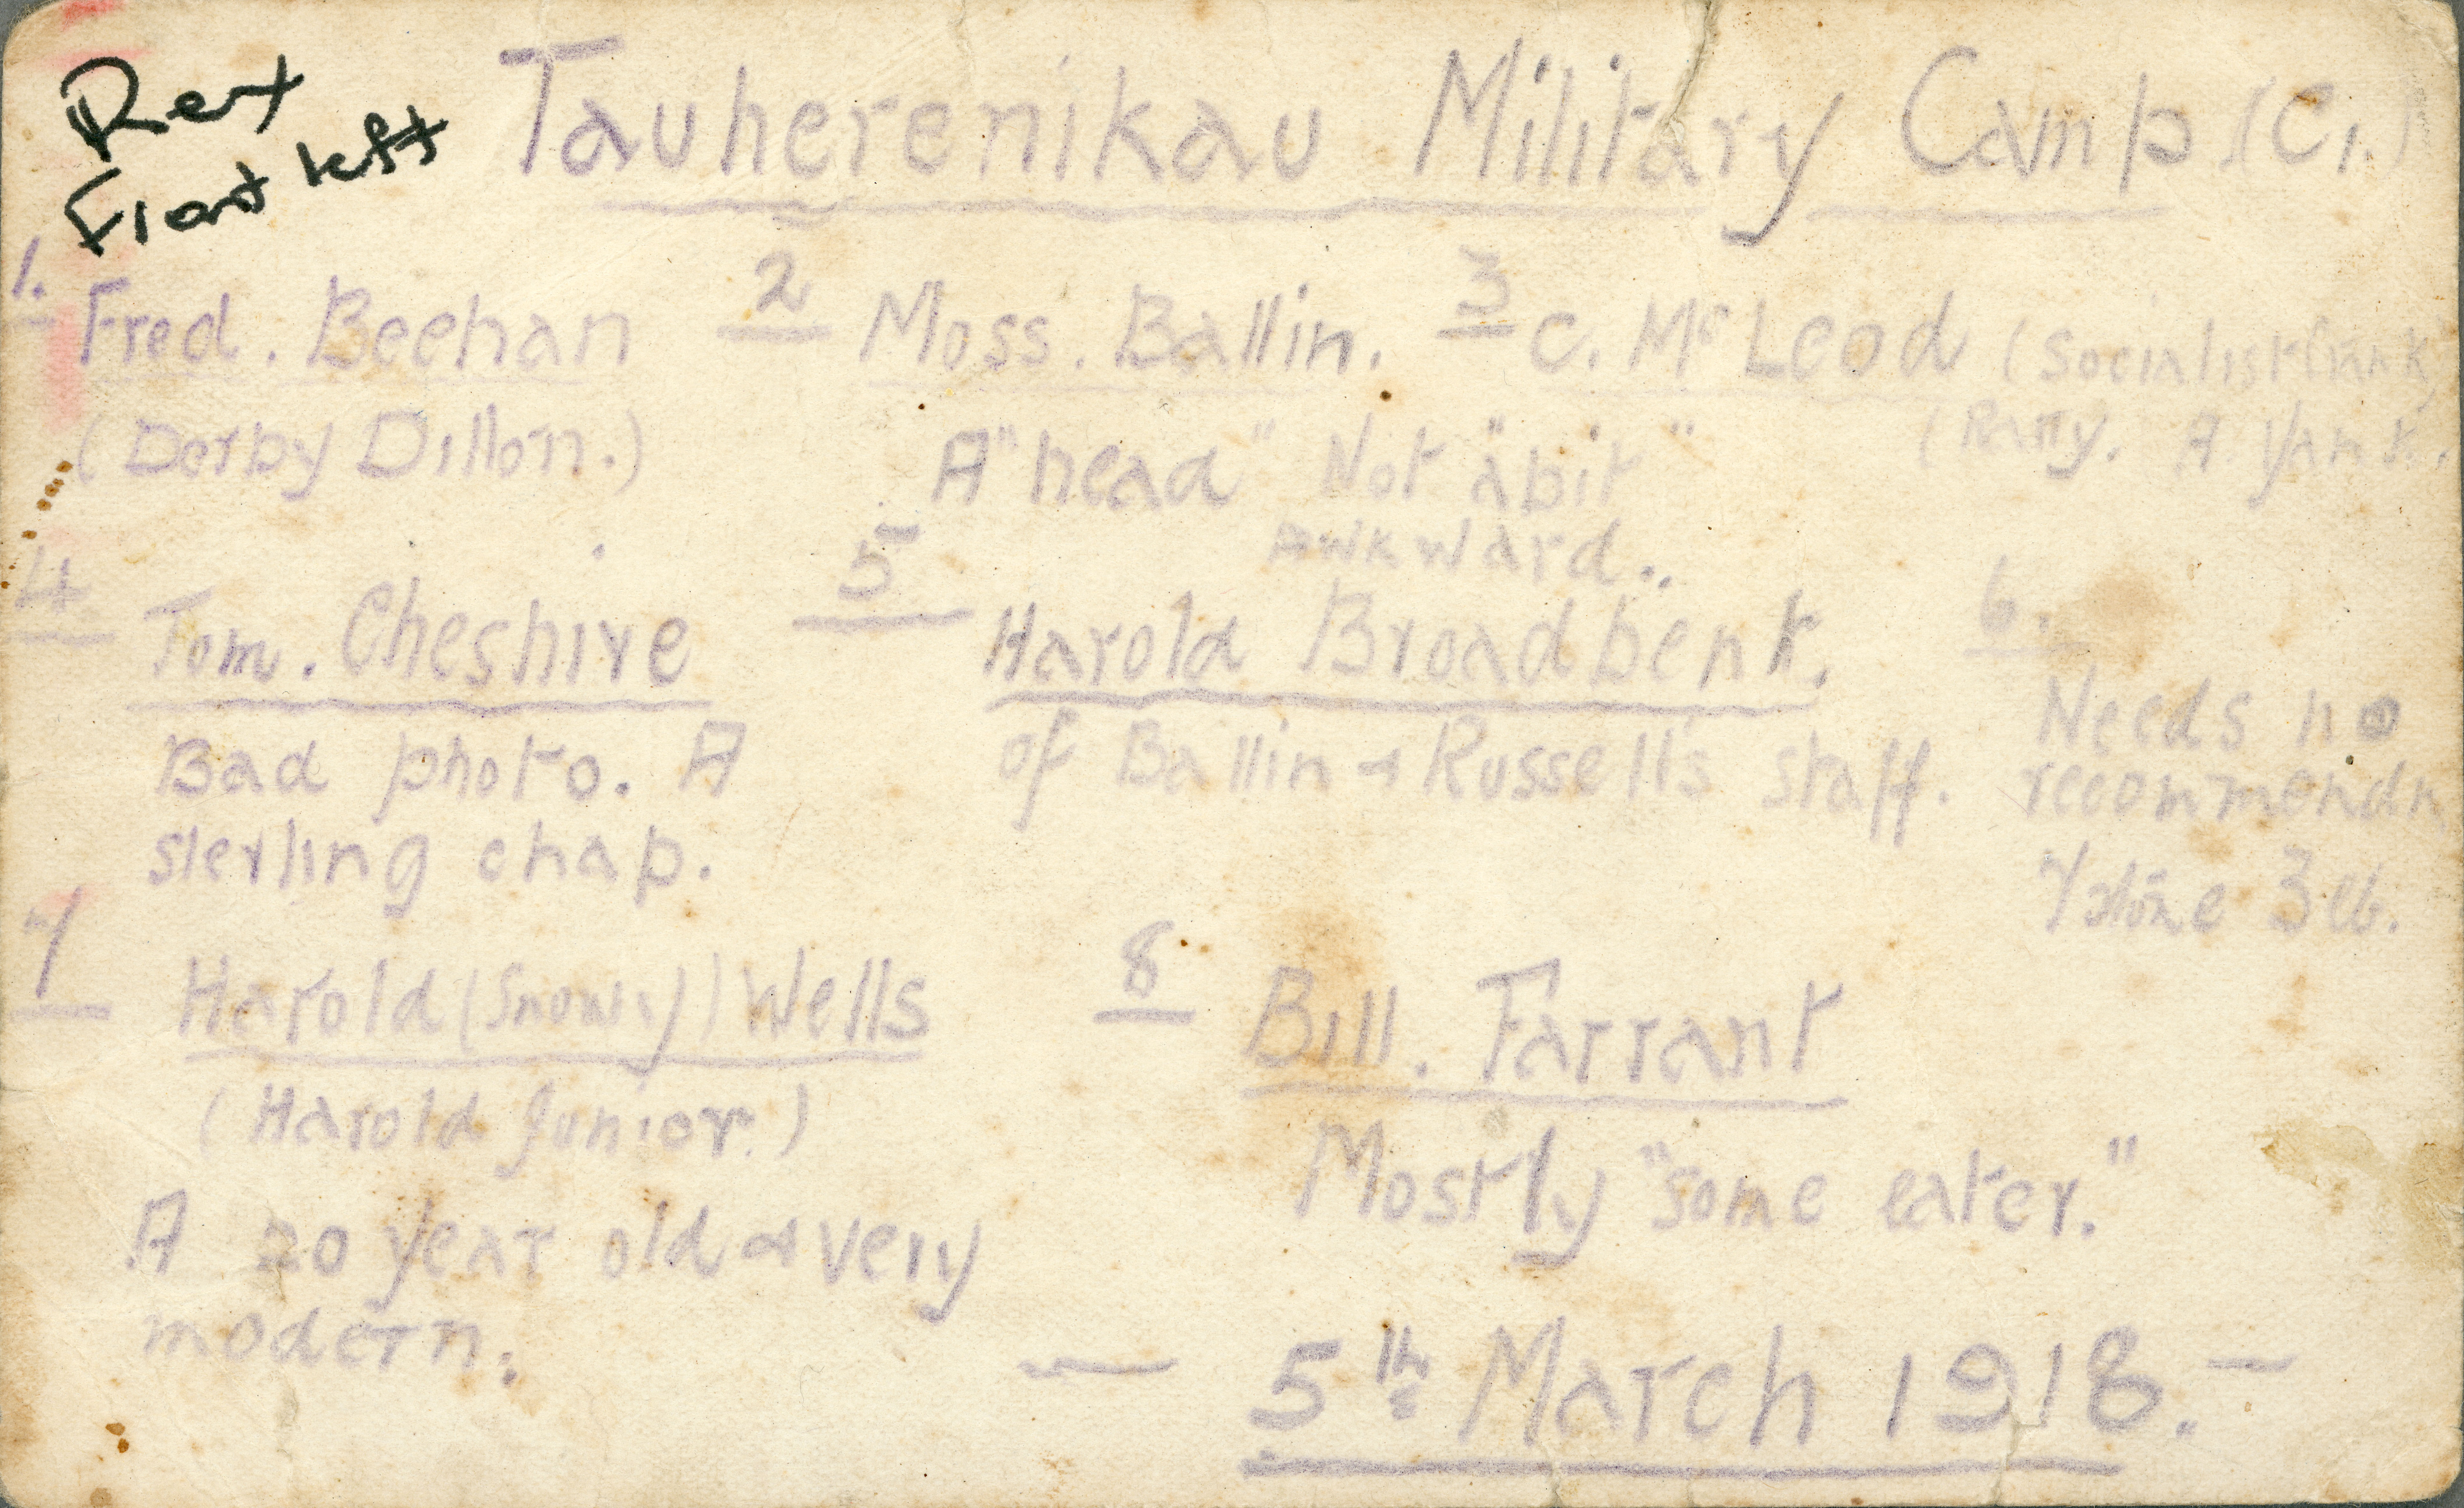 Rex
Front left
Tauherenikau Military Camp (C1.)
1. Fred. Beehan
(Derby Dillon.)
2 Moss. Ballin.
A "head" Not "a bit"
Awkward..
3 C. McLeod (Socialist
(Party. A Yank.
4 Tom. Cheshire
Bad photo. A
sterling chap.
5 Harold Broadbent.
of Ballin & Russell's staff.
6.
Needs no
recommendn
7 Harold (Snowy) Wells
(Harold Junior.)
A 20 year old & very
modern.
8 Bill. Farrant
Mostly "some eater."
— 5th March 1918. —